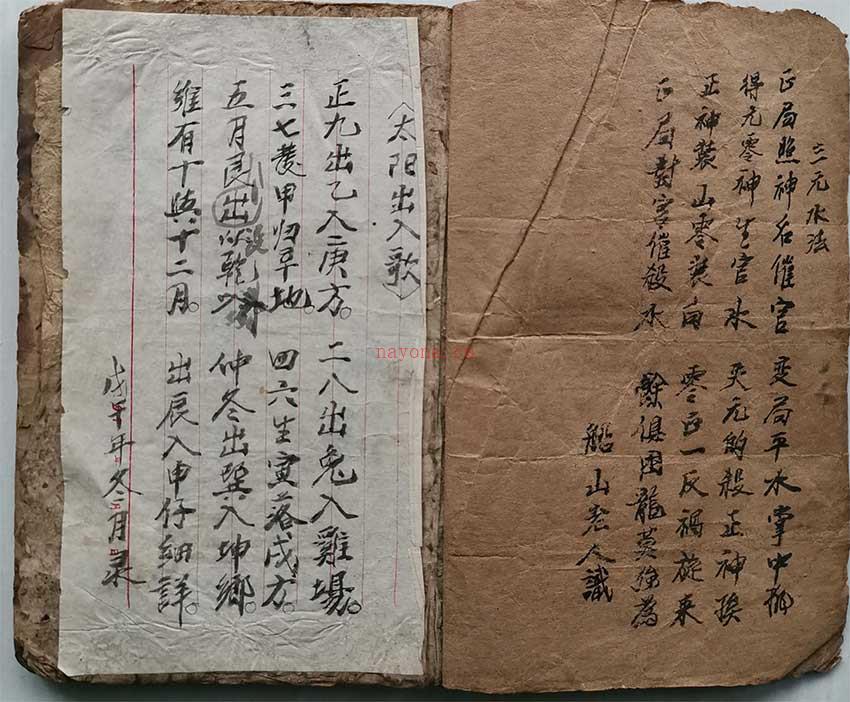 三元水法
正局照神名催官 变局平水掌中
得元零神生官水 失元的殺正神換
正神裝山零裝向 零正一反禍旋来
正局對宮催殺水 俱困龍莫強為
船山老人識
〈太阳出入歌〉
正九出乙入庚方。 二八出兔入雞場。
三七發甲归辛地。 四六生寅落戌方。
五月艮出以乾 没 仲冬出巽入坤鄉。
維有十與十二月。 出辰入申仔細詳。
戊午年冬月录
nayona.cn